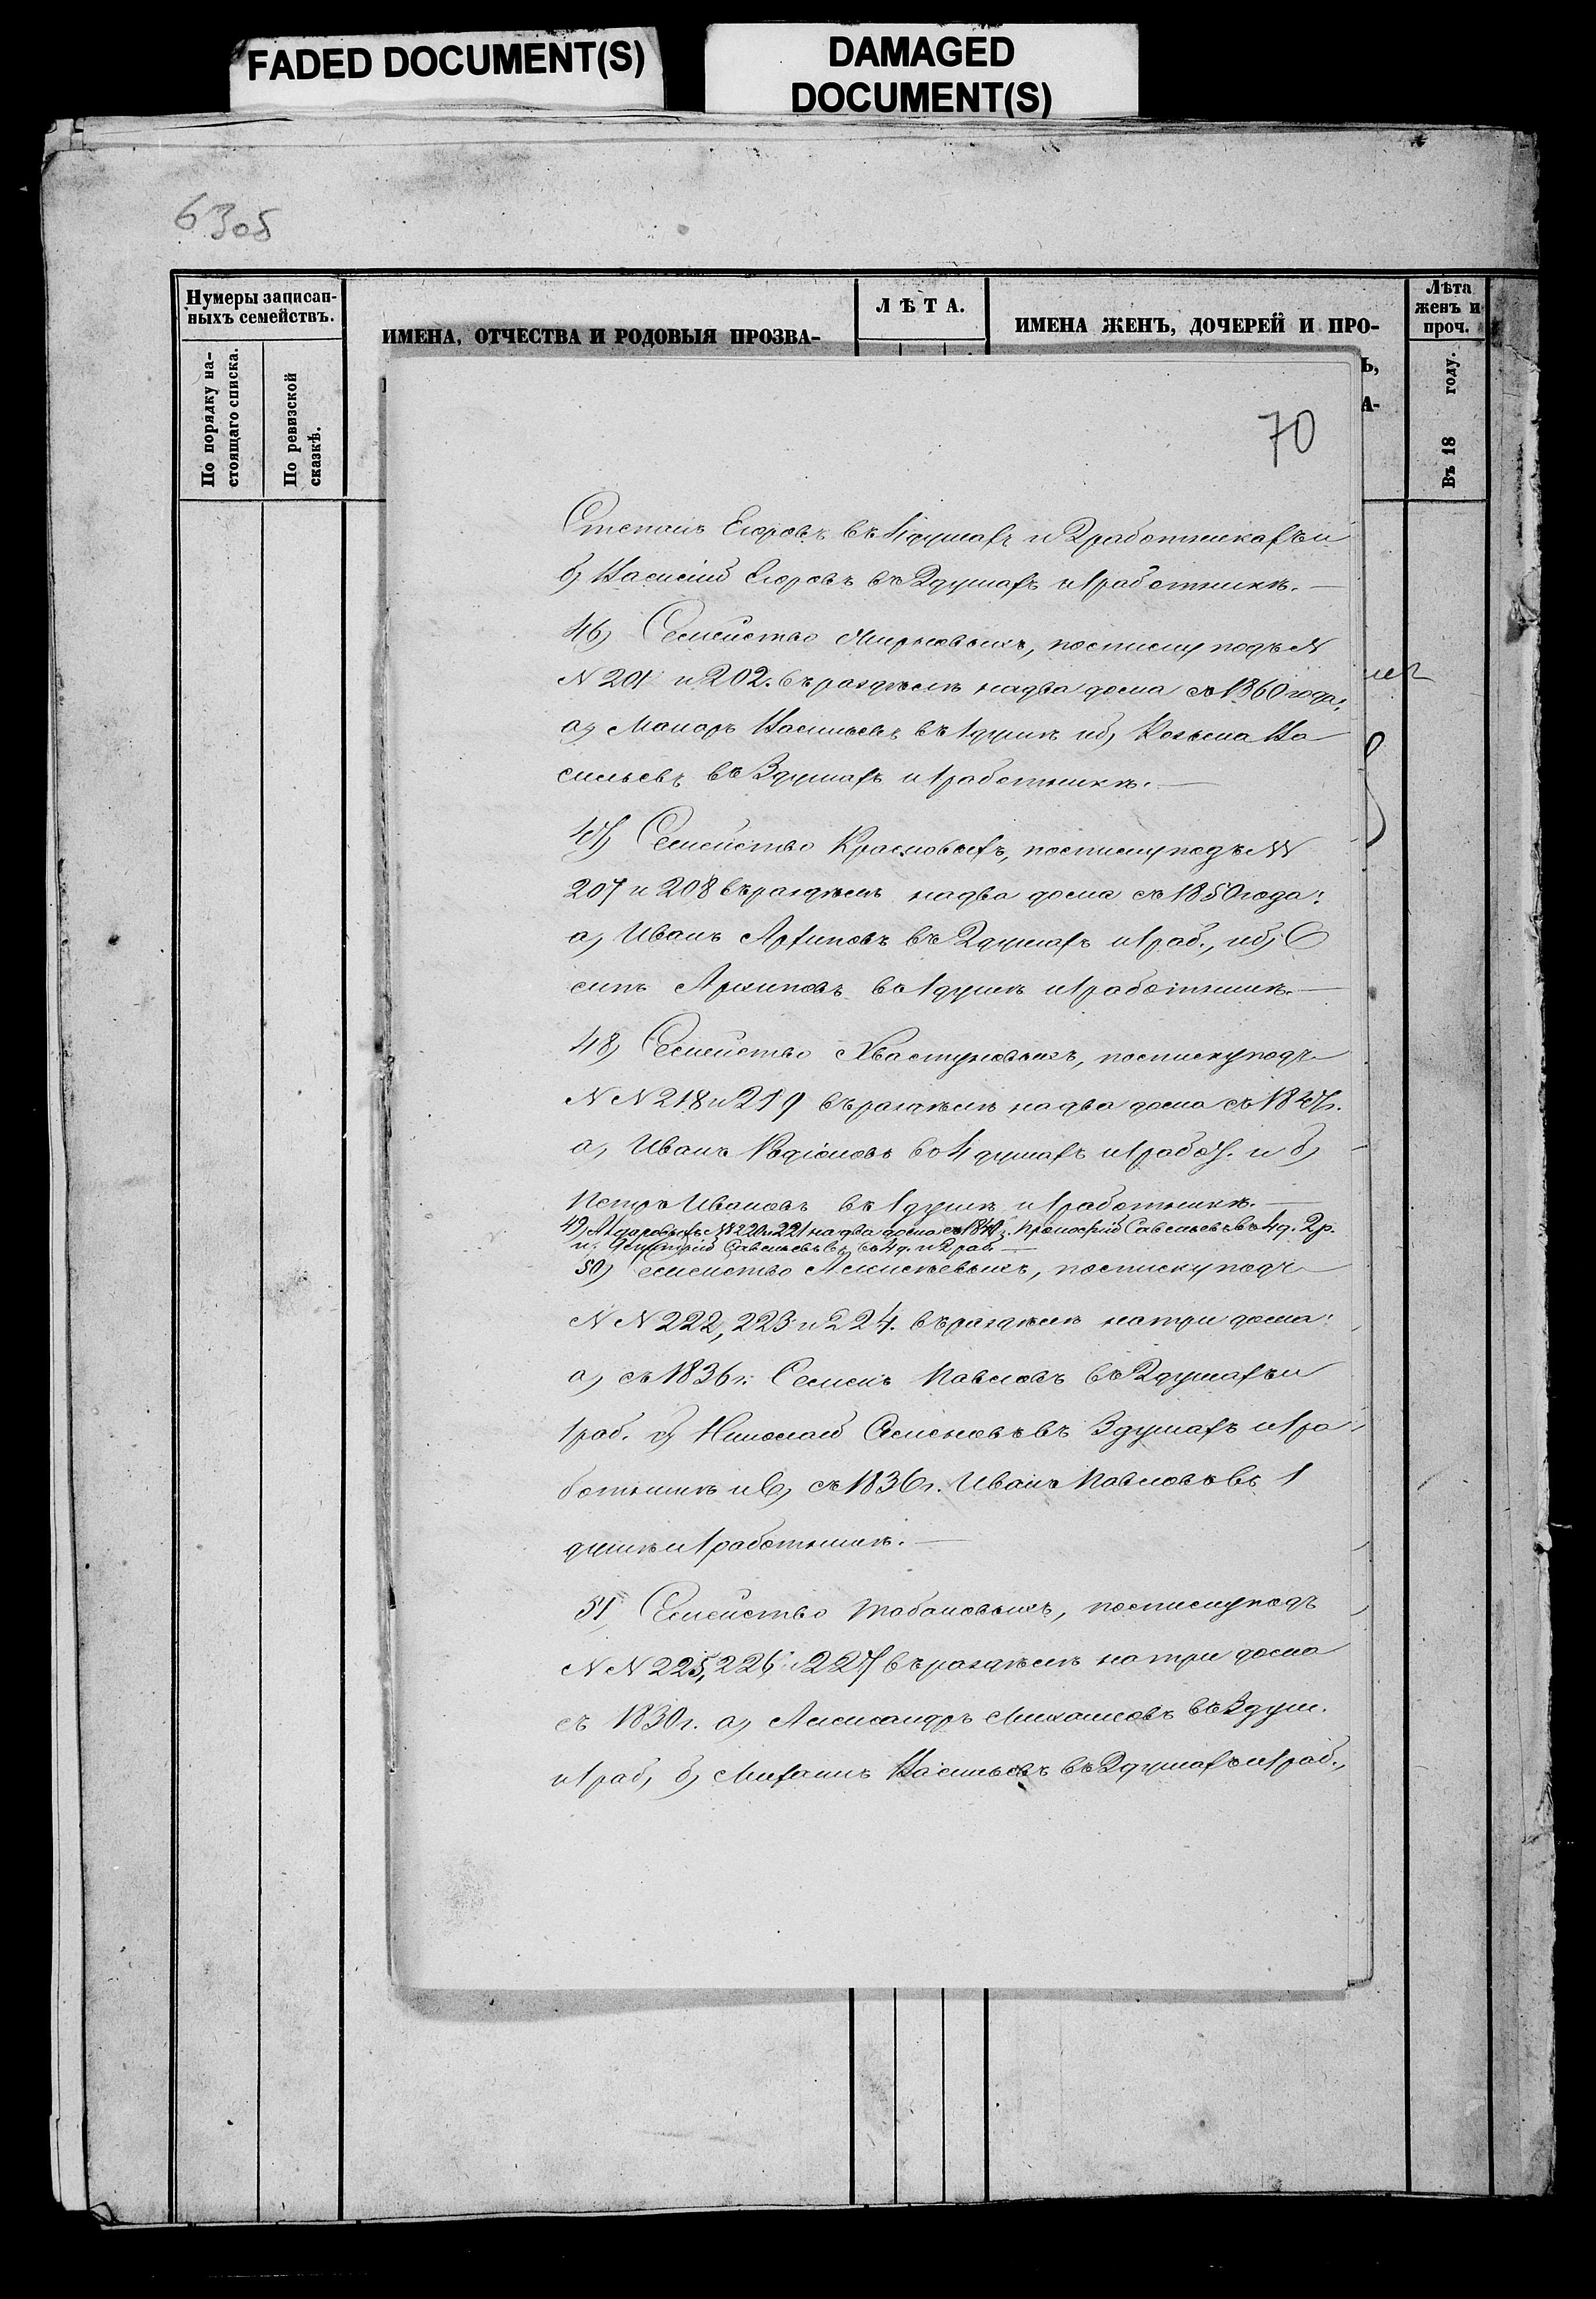 FADED DOCUMENT(S)
DAMAGED
DOCUMENT(S)
6305
Нумеры записан-
ныхъ семействъ.
По порядку на-
стоящаго списка.
По ревизской
сказкѣ.
ИМЕНА, ОТЧЕСТВА И РОДОВЫЯ ПРОЗВА-
ЛѢТА.
ИМЕНА ЖЕНЪ, ДОЧЕРЕЙ И ПРО-
Ъ,
А-
Лѣта
женъ и
проч.
Въ 18 году.
70
Степанъ Егоровъ въ 4 душахъ и 2 работникахъ и
б) Василій Егоровъ въ 2 душахъ и 1 работникѣ. —
46) Семейство, по списку подъ N
N 201 и 202. въ раздѣлѣ на два дома съ 1860 года:
а) Макаръ Васильевъ въ 1 душѣ и б) Козьма Ва
сильевъ въ 3 душахъ и 1 работникѣ. —
47) Семейство, по списку подъ NN
207 и 208 въ раздѣлѣ на два дома съ 1850 года:
а) Иванъ Архиповъ въ 2 душахъ и 1 раб., и б) О
сипъ Архиповъ въ 1 душѣ и 1 работникѣ. —
48) Семейство Хвастуновыхъ, по списку подъ
N N 218 и 219 въ раздѣлѣ на два дома съ 1847 г.
а) Иванъ Родіоновъ во 4 душахъ и 1 работ. и б)
Петръ Ивановъ въ 1 душѣ и 1 работникѣ. —
49) N 220 и 221 на два дома съ Савельевъ въ 4 д. 2 р.
и Дмитрій Савельевъ въ 4 д. и 2 раб. —
50) Семейство Алексѣевыхъ, по списку подъ
N N 222, 223 и 224. въ раздѣлѣ на три дома:
а) съ 1836 г. Семенъ Павловъ въ 2 душахъ и
1 раб. б) Николай Семеновъ въ 3 душахъ и 1 ра
ботникѣ и в) съ 1836 г. Иванъ Павловъ въ 1
душѣ и 1 работникѣ. —
51) Семейство, по списку подъ
N N 225, 226 и 227 въ раздѣлѣ на три дома
съ 1830 г. а) Александръ Михайловъ въ 3 душ.
и 1 раб, б) Михаилъ Васильевъ въ 2 душахъ и 1 раб.,